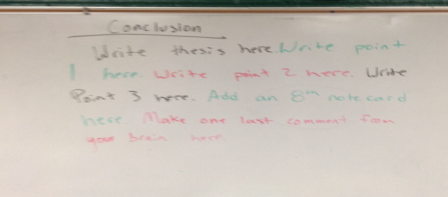 Conclusion
Write thesis here. Write point
1 here. Write point 2 here. Write
Point 3 here. Add an 8th notecard
here Make one last comment from
your brain here